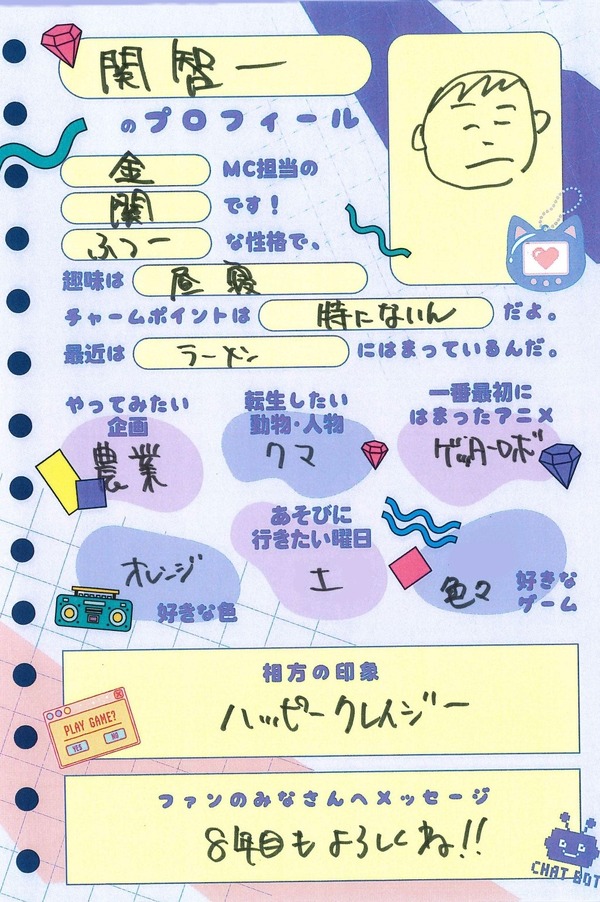 関智一
のプロフィール
金 MC担当の
関 です！
ふつー な性格で、
趣味は 昼寝
チャームポイントは 特にないん だよ。
最近は ラーメン にはまっているんだ。
やってみたい
企画
農業
転生したい
動物・人物
クマ
一番最初に
はまったアニメ
ゲッターロボ
オレンジ
好きな色
あそびに
行きたい曜日
土
色々
好きな
ゲーム
相方の印象
ハッピークレイジー
PLAY GAME?
YES NO
ファンのみなさんへメッセージ
8年目もよろしくね!!
CHAT BOT